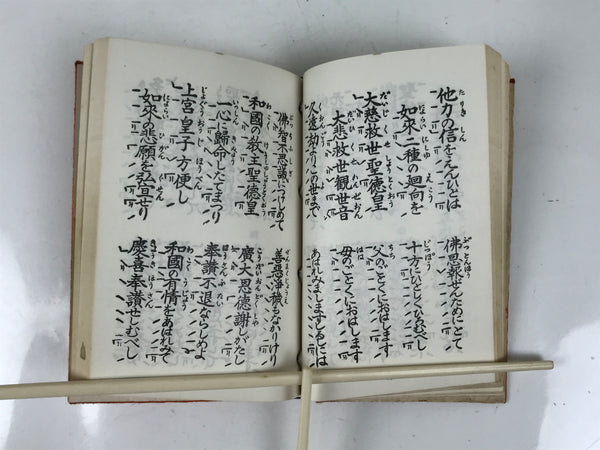 他力の信をえんひとは
佛恩報ぜんためにとて
如來二種の廻向を
十方にひとしくひろむべし
大慈救世聖德皇
父のごとくにおはします
大悲救世観世音
母のごとくにおはします
久遠劫よりこの世まで
あはれみましますしるしには
佛智不思議につけしめて
善惡淨穢もなかりけり
和國の教主聖德皇
廣大恩德謝しがたし
一心に歸命したてまつり
奉讃不退ならしめよ
上宮皇子方便し
和國の有情をあはれみて
如來の悲願を弘宣せり
慶喜奉讃せしむべし